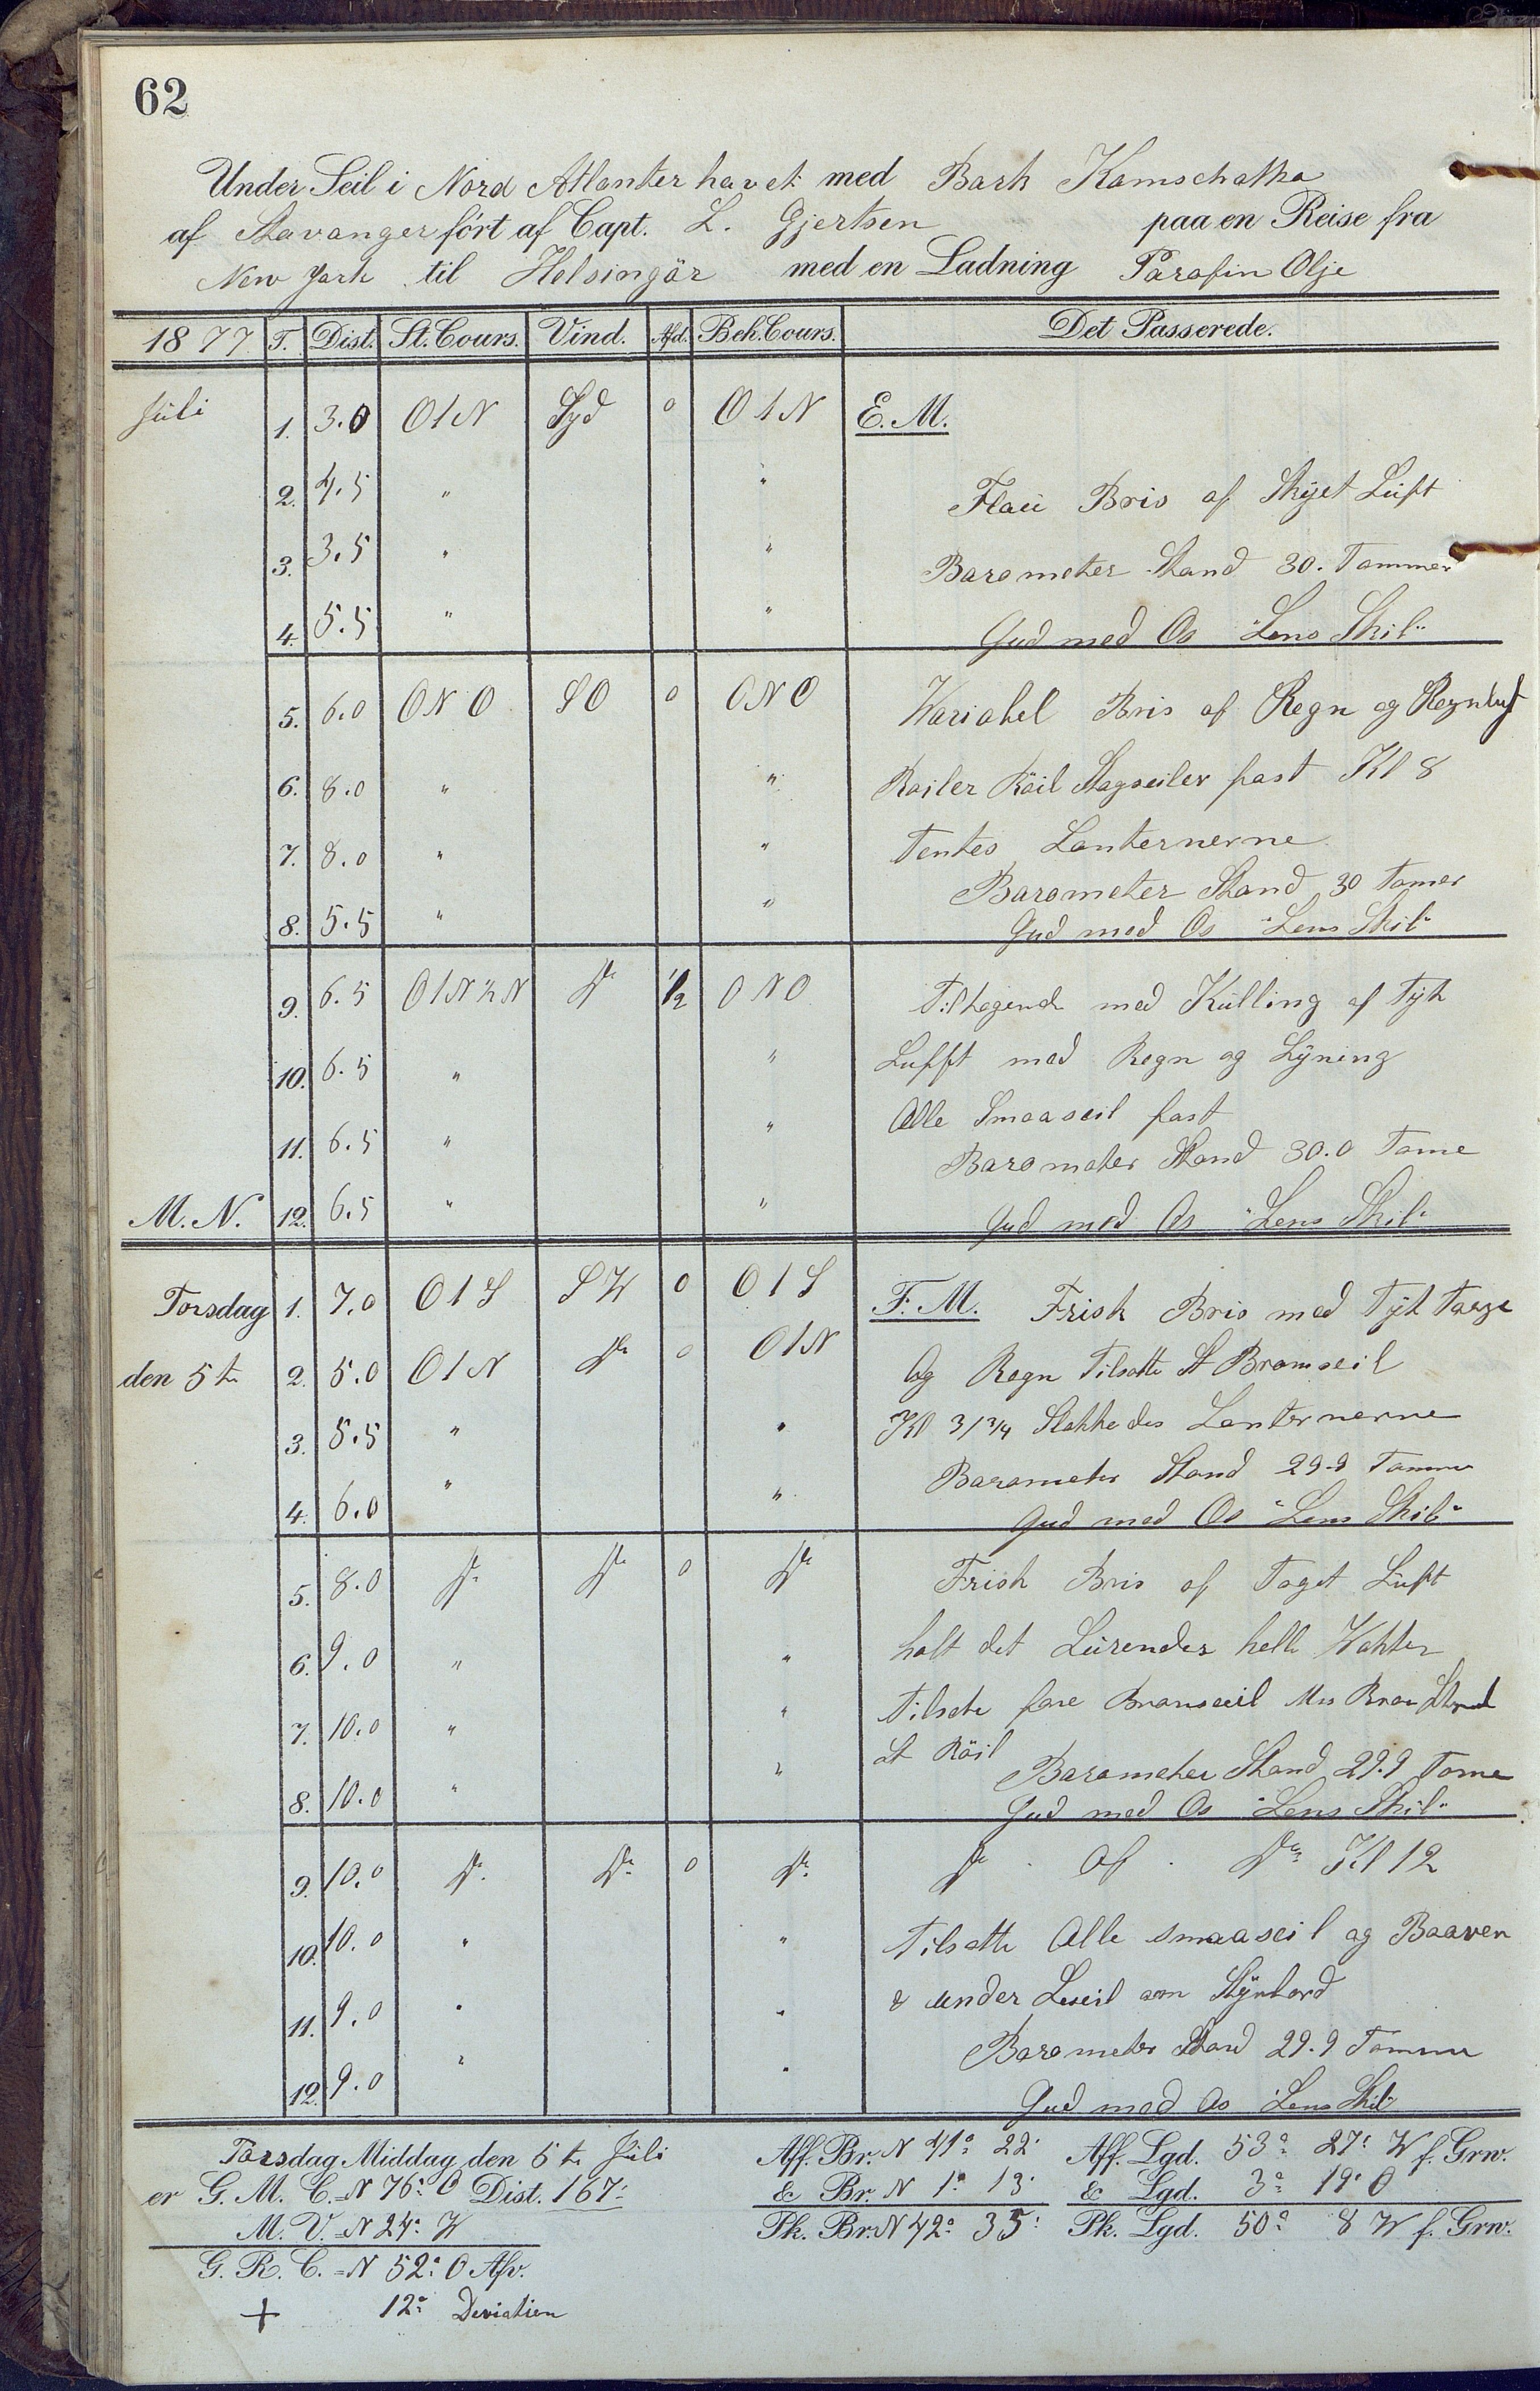 62
Under Seil i Nord Atlanter havet med Bark Kamschatka
af Stavanger fört af Capt. L. Gjertsen paa en Reise fra
New York til Helsingör med en Ladning Parafin Olje
1877 T. Dist. St. Cours. Vind. Afd. Beh. Cours. Det Passerede.
Juli 1. 3.0 O 1 N Syd 0 O 1 N E. M.
2. 4.5 " " Flau Bris af Skyet Luft
3. 3.5 " " Barometer Stand 30. Tommer
4. 5.5 " " Gud med Os "Lens Skib"
5. 6.0 ONO SO 0 ONO Wariabel Bris af Regn og Regnluft
6. 8.0 " " Roiler Röil Stagseiler fast Kl 8
7. 8.0 " " Tentes Lanternerne
Barometer Stand 30 Tomer
8. 5.5 " " Gud med Os "Lens Skib"
9. 6.5 O1N½N Do 1/2 ONO Tiltagende med Kulling af Tyk
10. 6.5 " " Lufft med Regn og Lyning
11. 6.5 " " Alle Smaaseil fast
Barometer Stand 30.0 Tome
M. N. 12. 6.5 " " Gud med Os "Lens Skib"
Torsdag 1. 7.0 O 1 S SW 0 O 1 S F. M. Frisk Bris med Tyk Taage
den 5te 2. 5.0 O 1 N Do 0 O 1 N Og Regn Tilsatte St Bramseil
3. 5.5 " " Kl 3/3/4 Slukkedes Lanternerne
Barometer Stand 29.9 Tomme
4. 6.0 " " Gud med Os "Lens Skib"
5. 8.0 Do Do 0 Do Frisk Bris af Taget Luft
6. 9.0 " " holt det Lurendes helle Wakten
7. 10.0 " " Tilsate fore Bramseil
St Röil Barometer Stand 29.9 Tome
8. 10.0 " " Gud med Os "Lens Skib"
9. 10.0 Do Do 0 Do Do Af Do Kl 12
10. 10.0 " " Tilsatte Alle smaaseil og Baaven
11. 9.0 " " & under Leseil om Styrbord
Barometer Stand 29.9 Tomme
12. 9.0 " " Gud med Os "Lens Skib"
Torsdag Middag den 5te Juli Aff. Br. N 41° 22' Aff. Lgd. 53° 27' W f. Grw.
er G. M. C. = N 76° O Dist. 167' & Br. N 1° 13' & Lgd. 3° 19' O
M. V. = N 24° W Pk. Br. N 42° 35' Pk. Lgd. 50° 8 W f. Grw.
G. R. C. = N 52° O Afv.
+ 12° Deviation